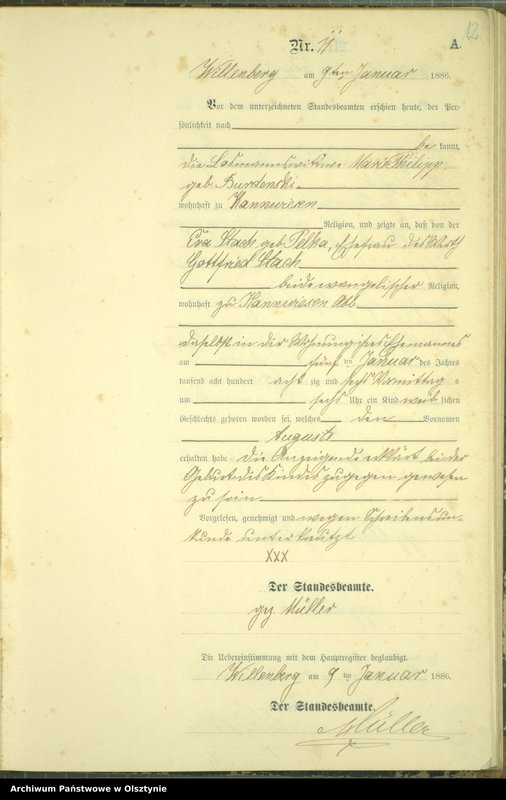 12
Nr. 11 A.
Willenberg am 9ten Januar 1886.
Vor dem unterzeichneten Standesbeamten erschien heute, der Per-
sönlichkeit nach
be kannt,
die Losmannswittwe Marie Philipp
geb. Burdenski
wohnhaft zu
Religion, und zeigte an, daß von der
Eva Stach geb. Pelka, Ehefrau des Wirth
Gottfried Stach
beide evangelischer Religion,
wohnhaft zu
daselbst in der Wohnung ihres Ehemannes
am fünf ten Januar des Jahres
tausend acht hundert acht zig und sechs Vormittag s
um sechs Uhr ein Kind weib lichen
Geschlechts geboren worden sei, welches den Vornamen
Auguste
erhalten habe. Die Anzeigende erklärt bei der
Geburt des Kindes zugegen gewesen
zu sein.
Vorgelesen, genehmigt und wegen Schreibensun-
kunde unterkreuzt
XXX
Der Standesbeamte.
gez. Müller
Die Uebereinstimmung mit dem Hauptregister beglaubigt.
Willenberg am 9 ten Januar 1886.
Der Standesbeamte.
Müller
Archiwum Państwowe w Olsztynie